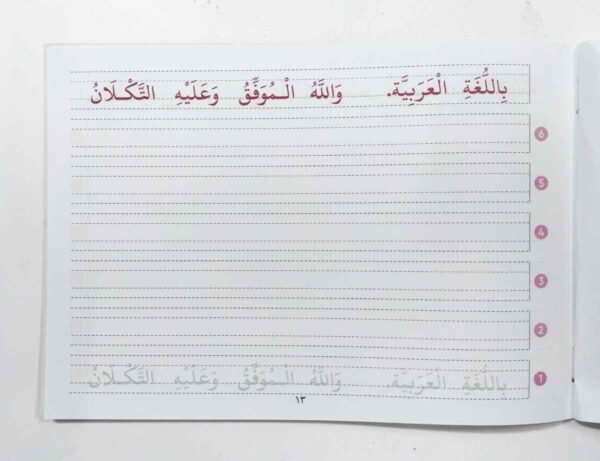 بِاللُّغَةِ الْعَرَبِيَّة. وَاللَّهُ الْـمُوَفِّقُ وَعَلَيْهِ التَّكْـلَانُ
6
5
4
3
2
1 بِاللُّغَةِ الْعَرَبِيَّة. وَاللَّهُ الْـمُوَفِّقُ وَعَلَيْهِ التَّكْـلَانُ
١٣